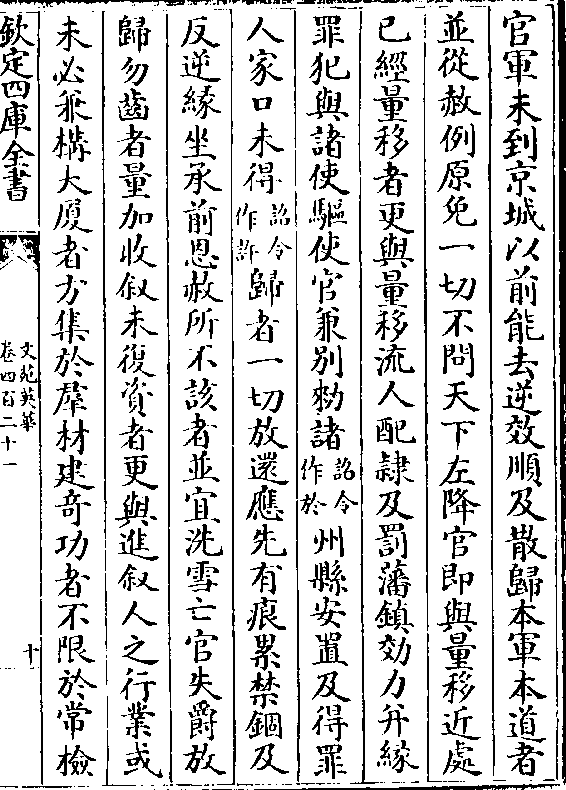 官軍未到京城以前能去逆效順及散歸本軍本道者
並從赦例原免一切不問天下左降官即與量移近處
已經量移者更與量移流人配隷及罰藩鎮効力并緣
罪犯與諸使驅使官兼别勑諸詔令作於州縣安置及得罪
人家口未得詔令作許歸者一切放還應先有痕累禁錮及
反逆緣坐承前恩赦所不該者並宜洗雪亡官失爵放
歸勿齒者量加收叙未復資者更與進叙人之行業或
未必兼構大厦者方集於羣材建奇功者不限於常檢
欽定四庫全書
文苑英華
卷四百二十一
十